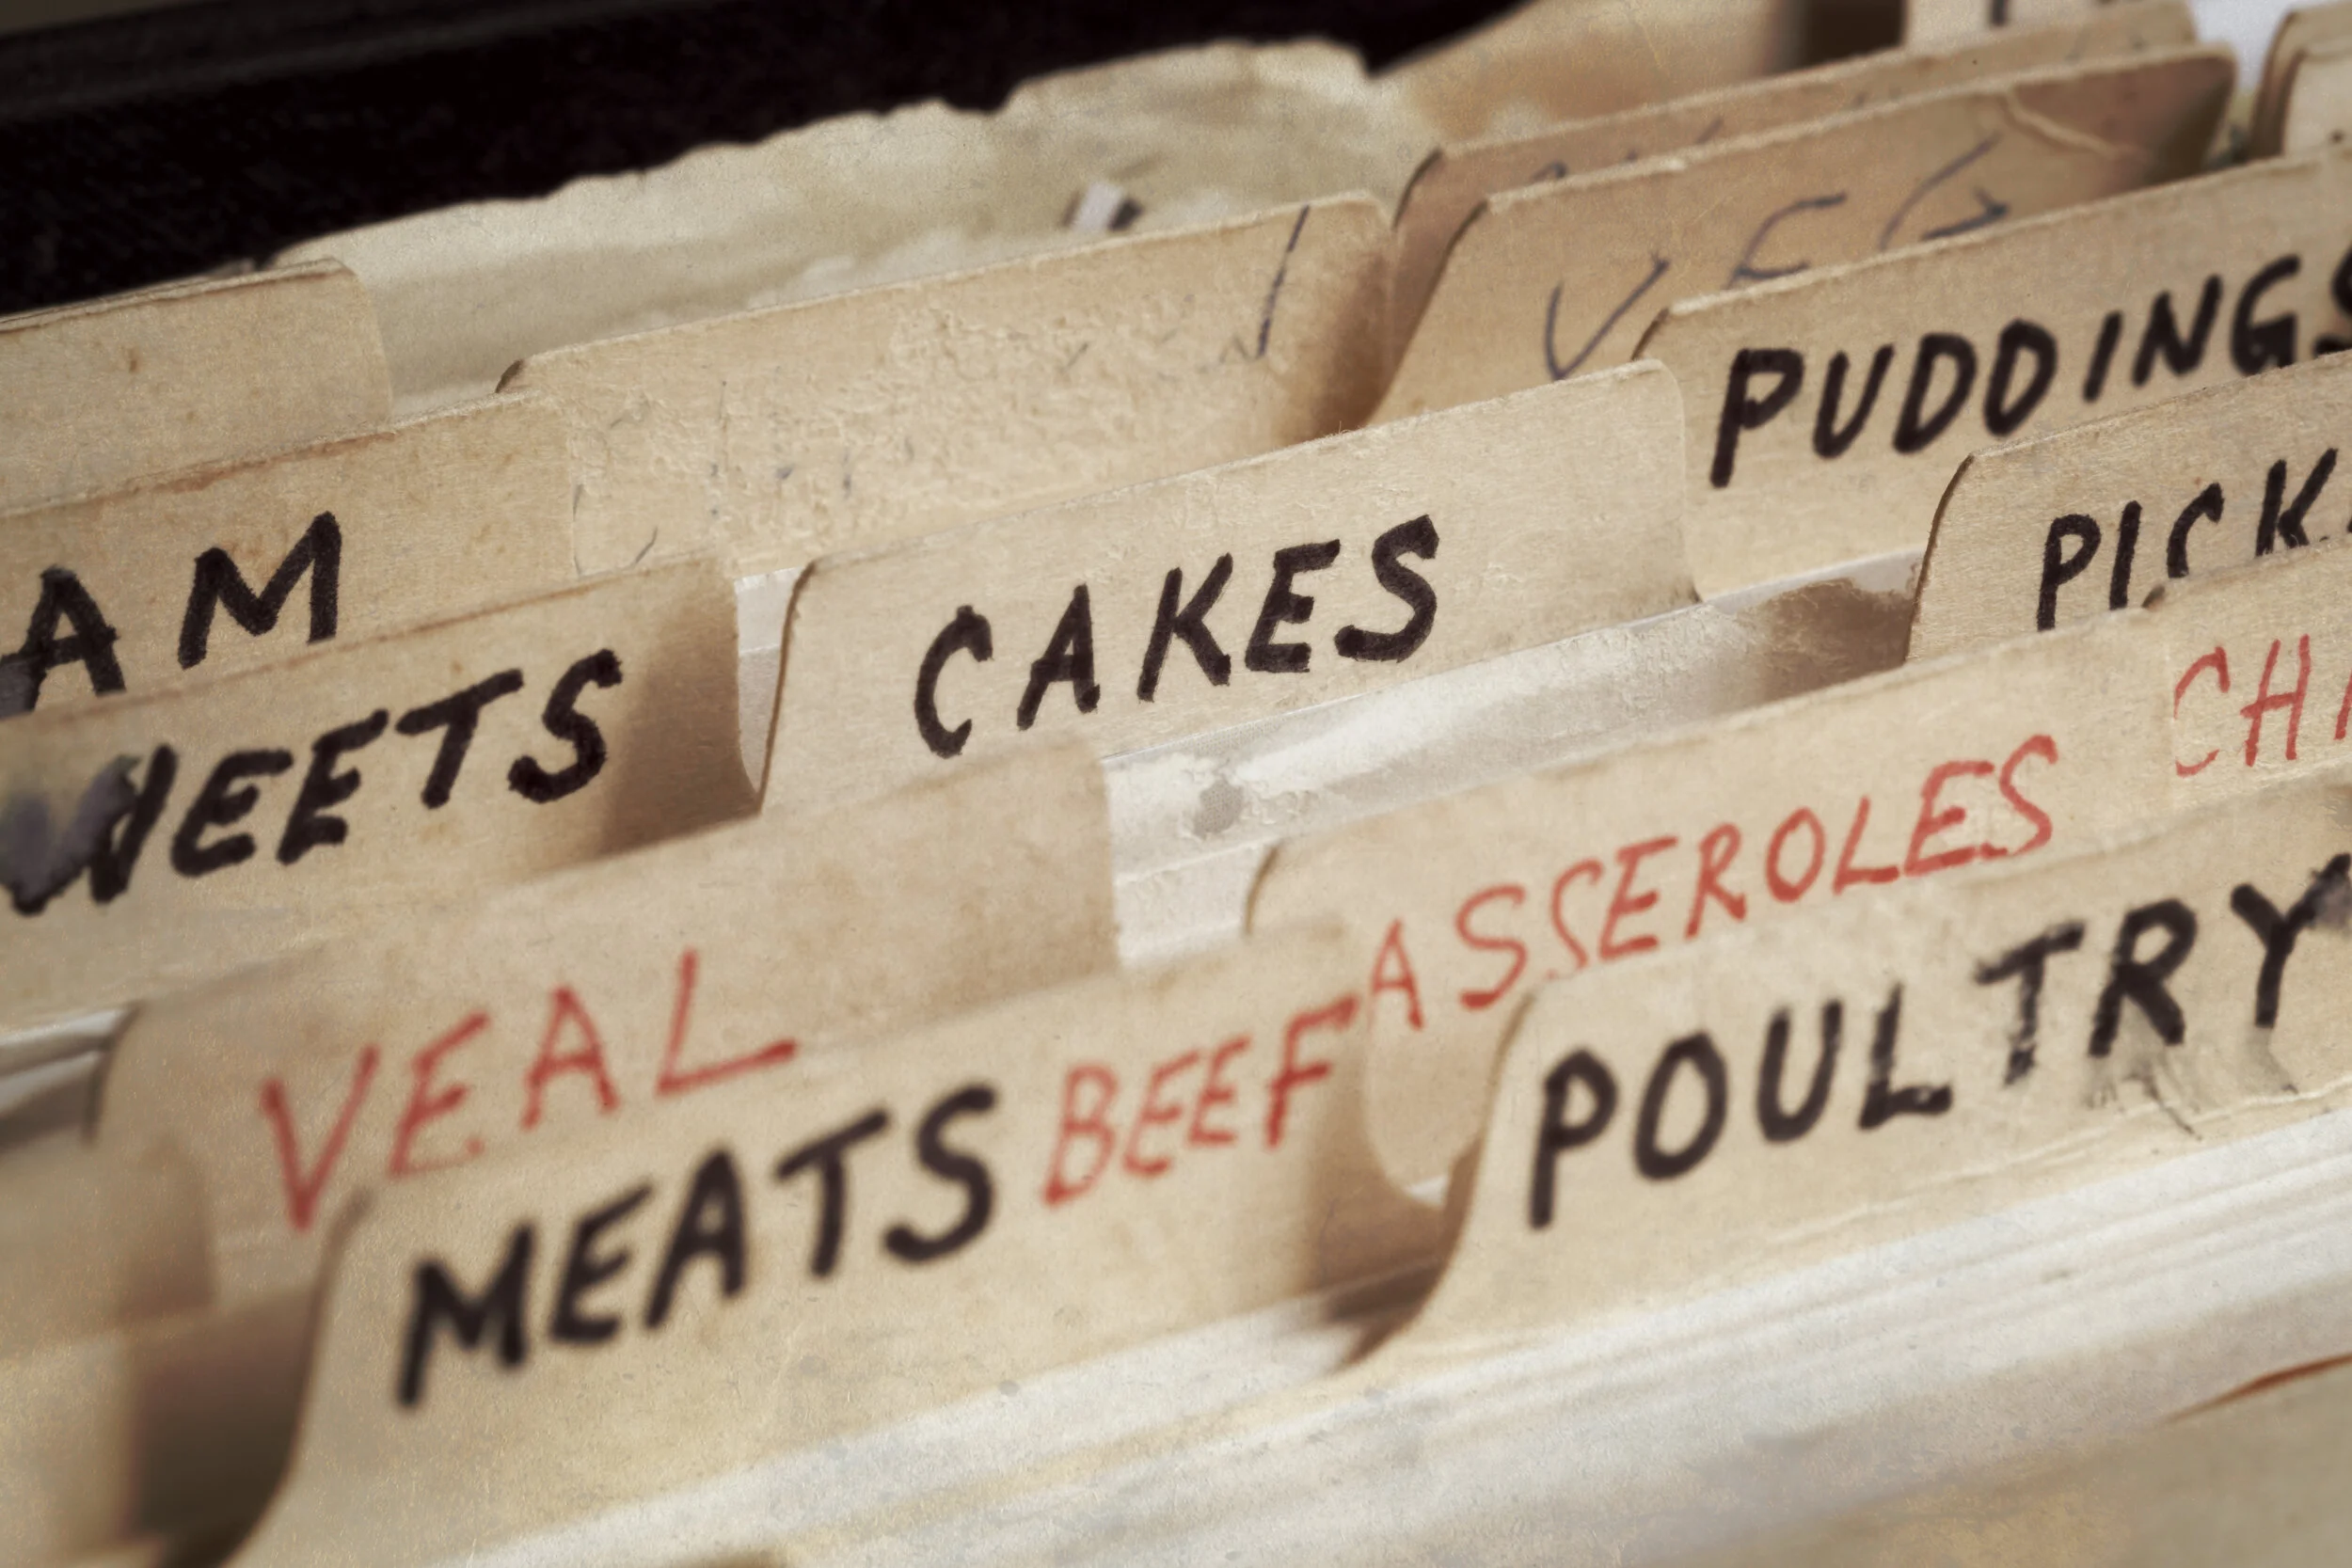 VEG
PUDDINGS
AM
CAKES
PICK
WEETS
CH
ASSEROLES
VEAL
MEATS BEEF
POULTRY